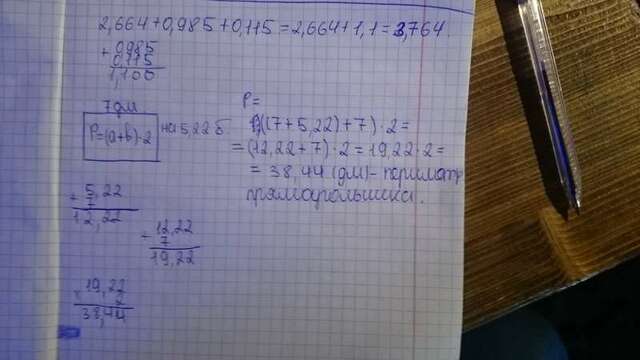 2,664+0,985+0,115=2,664+1,1=3,764
+ 0,985
0,115
1,100
7 дм
P=(a+b)·2
на 5,22 б
P=
((7+5,22)+7)·2=
=(12,22+7)·2=19,22·2=
=38,44 (дм)- периметр
прямоугольника.
+ 5,22
7
12,22
+ 12,22
7
19,22
× 19,22
2
38,44